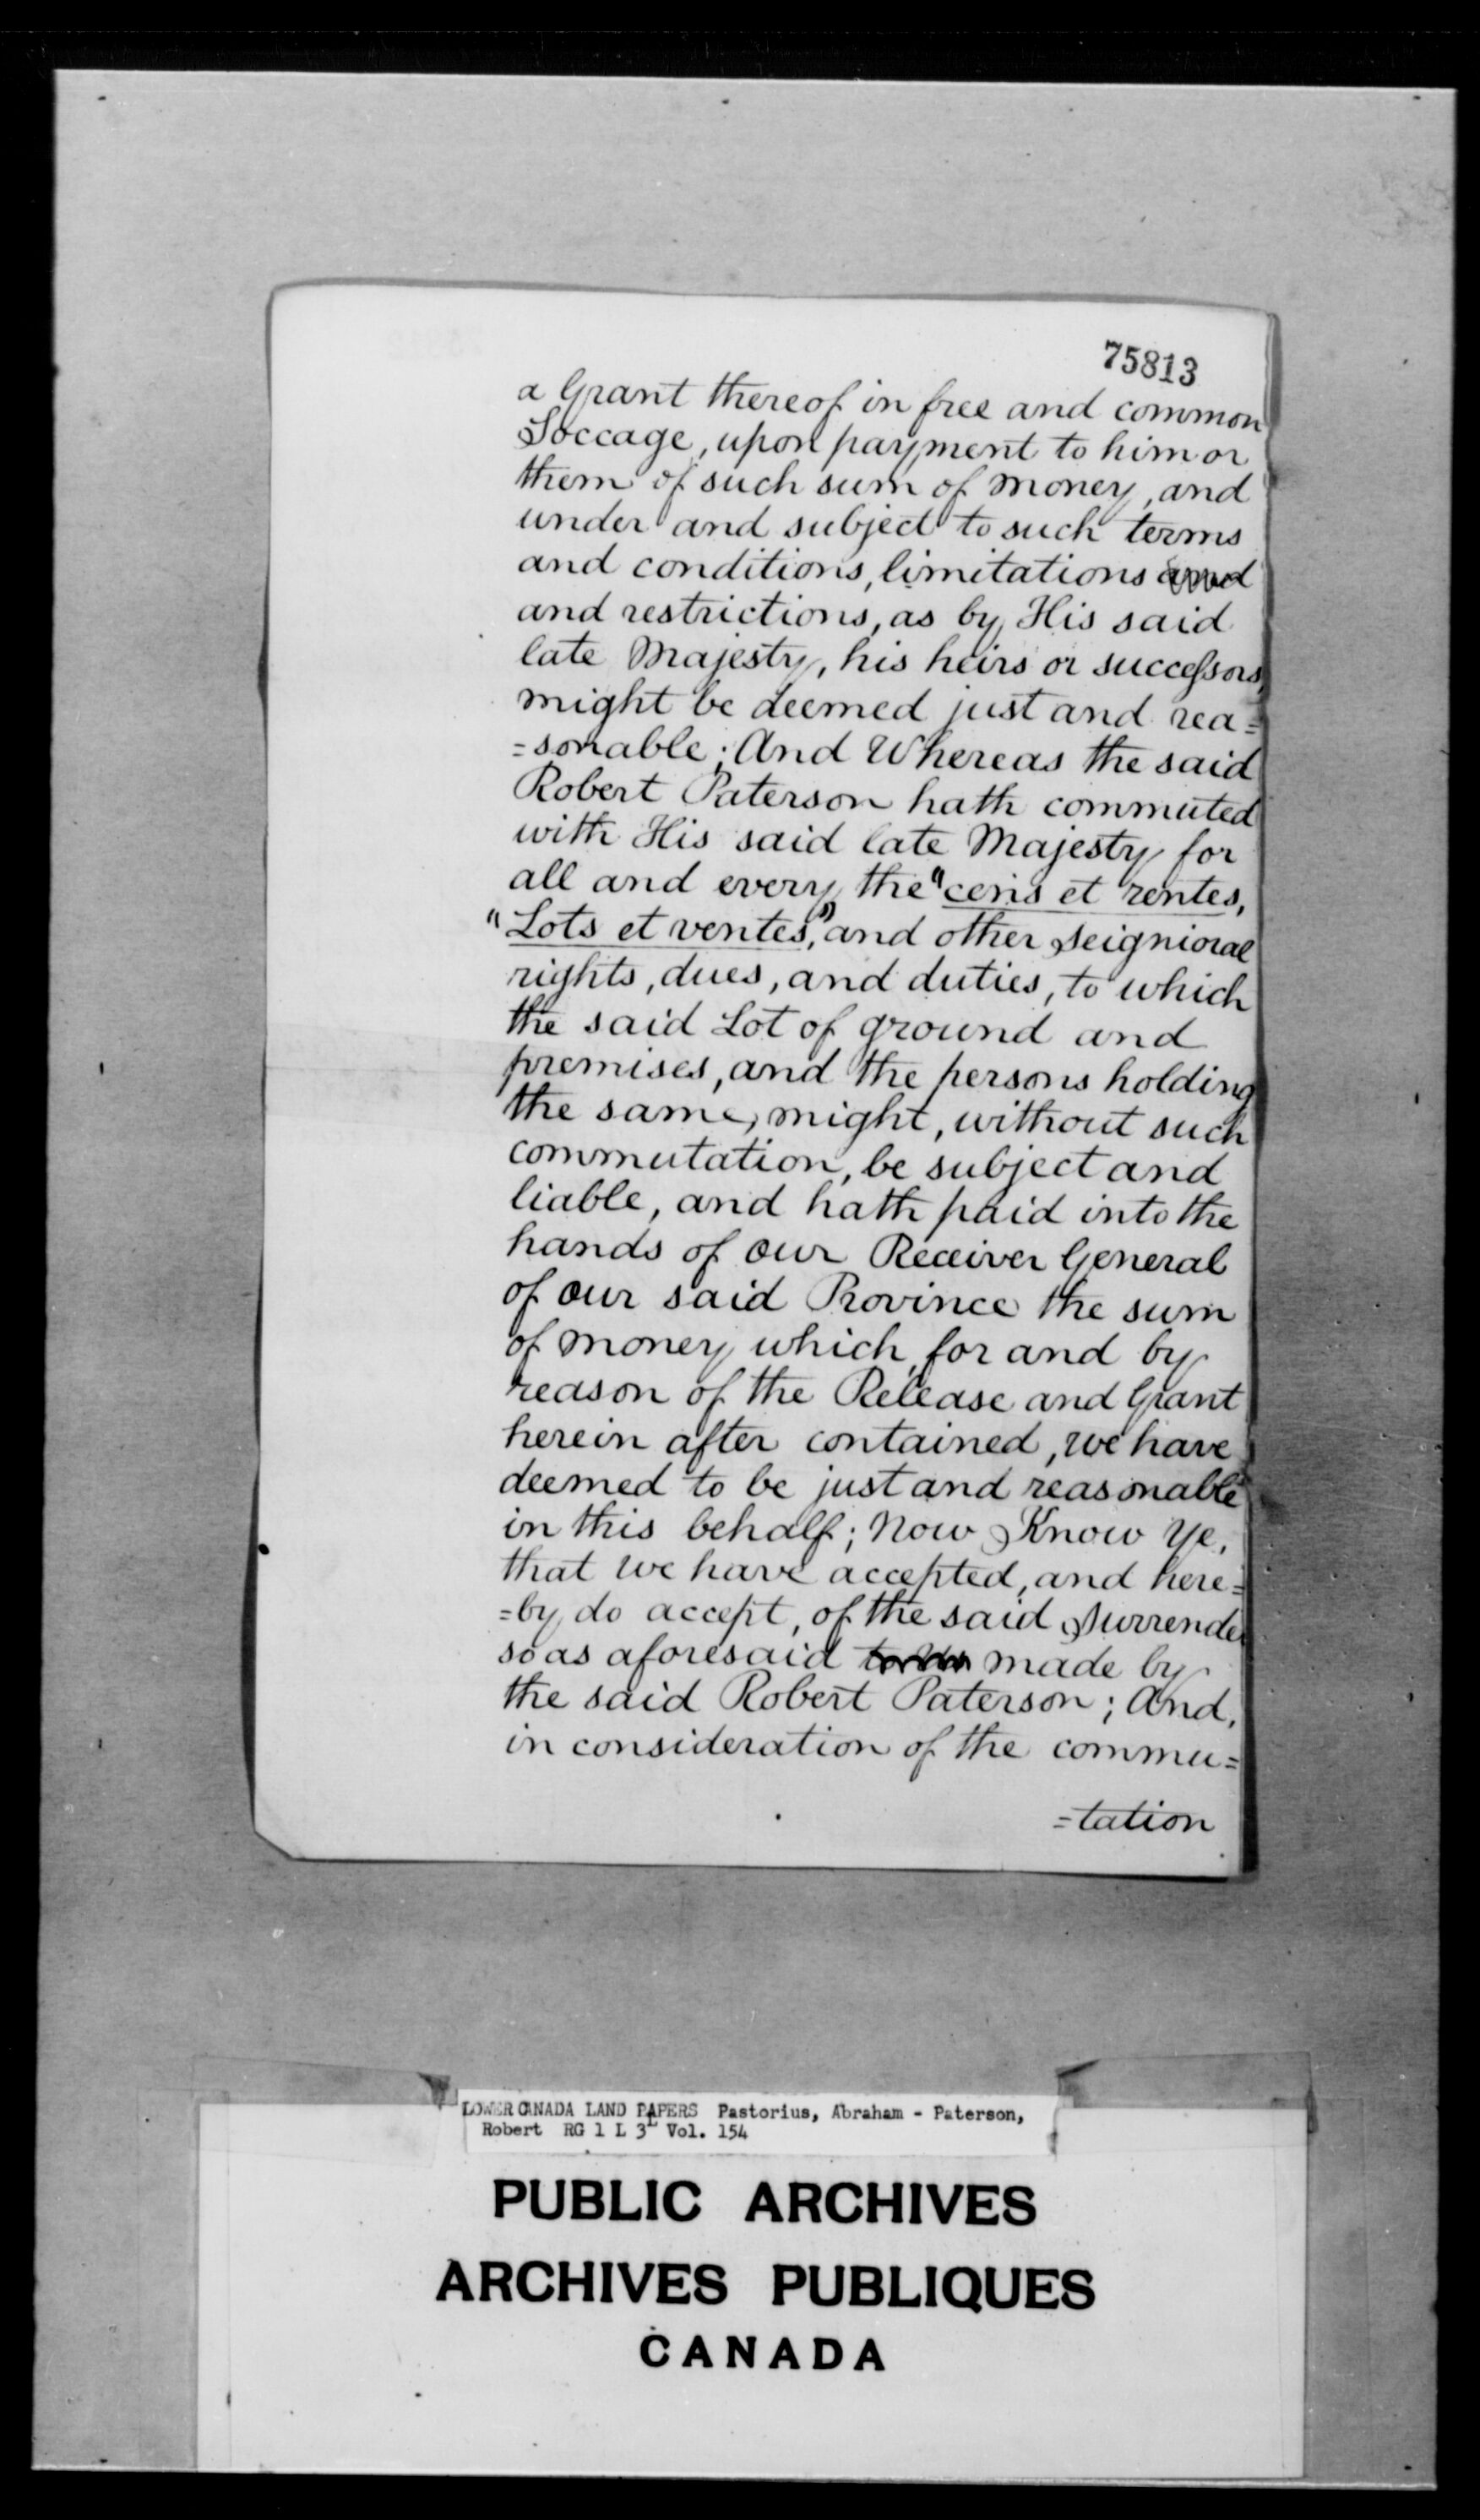 75813
a Grant thereof in free and common
Soccage, upon payment to him or
them of such sum of money, and
under and subject to such terms
and conditions, limitations and
and restrictions, as by His said
late Majesty, his heirs or successors,
might be deemed just and rea=
=sonable; And Whereas the said
Robert Paterson hath commuted
with His said late Majesty for
all and every the "cens et rentes,
"Lots et ventes," and other Seignioral
rights, dues, and duties, to which
the said Lot of ground and
premises, and the persons holding
the same, might, without such
commutation, be subject and
liable, and hath paid into the
hands of our Receiver General
of our said Province the sum
of money which, for and by
reason of the Release and Grant
herein after contained, we have
deemed to be just and reasonable
in this behalf; Now Know Ye,
that we have accepted, and here=
=by do accept, of the said Surrender
so as aforesaid made by
the said Robert Paterson; And,
in consideration of the commu=
=tation
LOWER CANADA LAND PAPERS Pastorius, Abraham - Paterson,
Robert RG 1 L 3L Vol. 154
PUBLIC ARCHIVES
ARCHIVES PUBLIQUES
CANADA